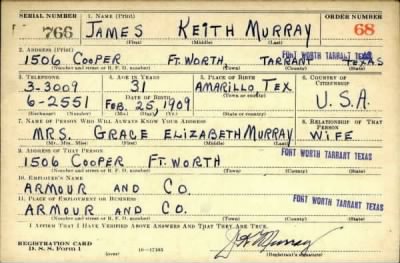 SERIAL NUMBER 1. NAME (Print) ORDER NUMBER
766 JAMES KEITH MURRAY 68
(First) (Middle) (Last)
2. ADDRESS (Print) FORT WORTH TARRANT TEXAS
1506 COOPER FT. WORTH TARRANT TEXAS
(Number and street or R. F. D. number) (Town) (County) (State)
3. TELEPHONE 4. AGE IN YEARS 5. PLACE OF BIRTH 6. COUNTRY OF CITIZENSHIP
3-3009 31 AMARILLO TEX
DATE OF BIRTH (Town or county)
6-2551 FEB. 25, 1909 U.S.A.
(Exchange) (Number) (Mo.) (Day) (Yr.) (State or country)
7. NAME OF PERSON WHO WILL ALWAYS KNOW YOUR ADDRESS 8. RELATIONSHIP OF THAT PERSON
MRS. GRACE ELIZABETH MURRAY WIFE
(Mr., Mrs., Miss) (First) (Middle) (Last)
9. ADDRESS OF THAT PERSON FORT WORTH TARRANT TEXAS
1506 COOPER FT. WORTH
(Number and street or R. F. D. number) (Town) (County) (State)
10. EMPLOYER'S NAME
ARMOUR AND CO.
11. PLACE OF EMPLOYMENT OR BUSINESS FORT WORTH TARRANT TEXAS
ARMOUR AND CO.
(Number and street or R. F. D. number) (Town) (County) (State)
I AFFIRM THAT I HAVE VERIFIED ABOVE ANSWERS AND THAT THEY ARE TRUE.
REGISTRATION CARD
D. S. S. Form 1 16-17105 (Registrant's signature)